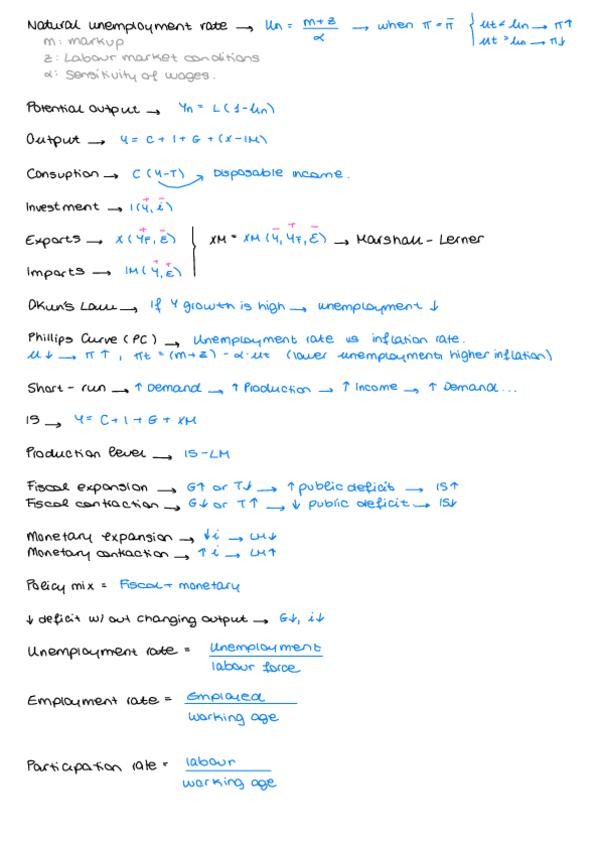 Natural unemployment rate → Un = m+z / α → when π = π̄ { ut < un → π↑
ut > un → π↓
m: markup
z: Labour market conditions
α: Sensitivity of wages.
Potential output → Yn = L(1-un)
Output → Y = C + I + G + (X-IM)
Consuption → C (Y-T) → Disposable income.
Investment → I(Y, i) + -
Exports → X (YF, E) + - | XM = XM (Y, YF, E) - + - → Marshall - Lerner
Imports → IM (Y, E) + +
Okun's Law → If Y growth is high → unemployment ↓
Phillips Curve (PC) → Unemployment rate vs inflation rate.
u↓ → π↑, πt = (m+z) - α·ut (lower unemployment, higher inflation)
Short-run → ↑ Demand → ↑ Production → ↑ Income → ↑ Demand...
IS → Y = C + I + G + XM
Production level → IS-LM
Fiscal expansion → G↑ or T↓ → ↑ public deficit → IS↑
Fiscal contraction → G↓ or T↑ → ↓ public deficit → IS↓
Monetary expansion → ↓i → LM↓
Monetary contaction → ↑i → LM↑
Policy mix = Fiscal + monetary
↓ deficit w/out changing output → G↓, i↓
Unemployment rate = Unemployment / labour force
Employment rate = Employed / working age
Participation rate = labour / working age